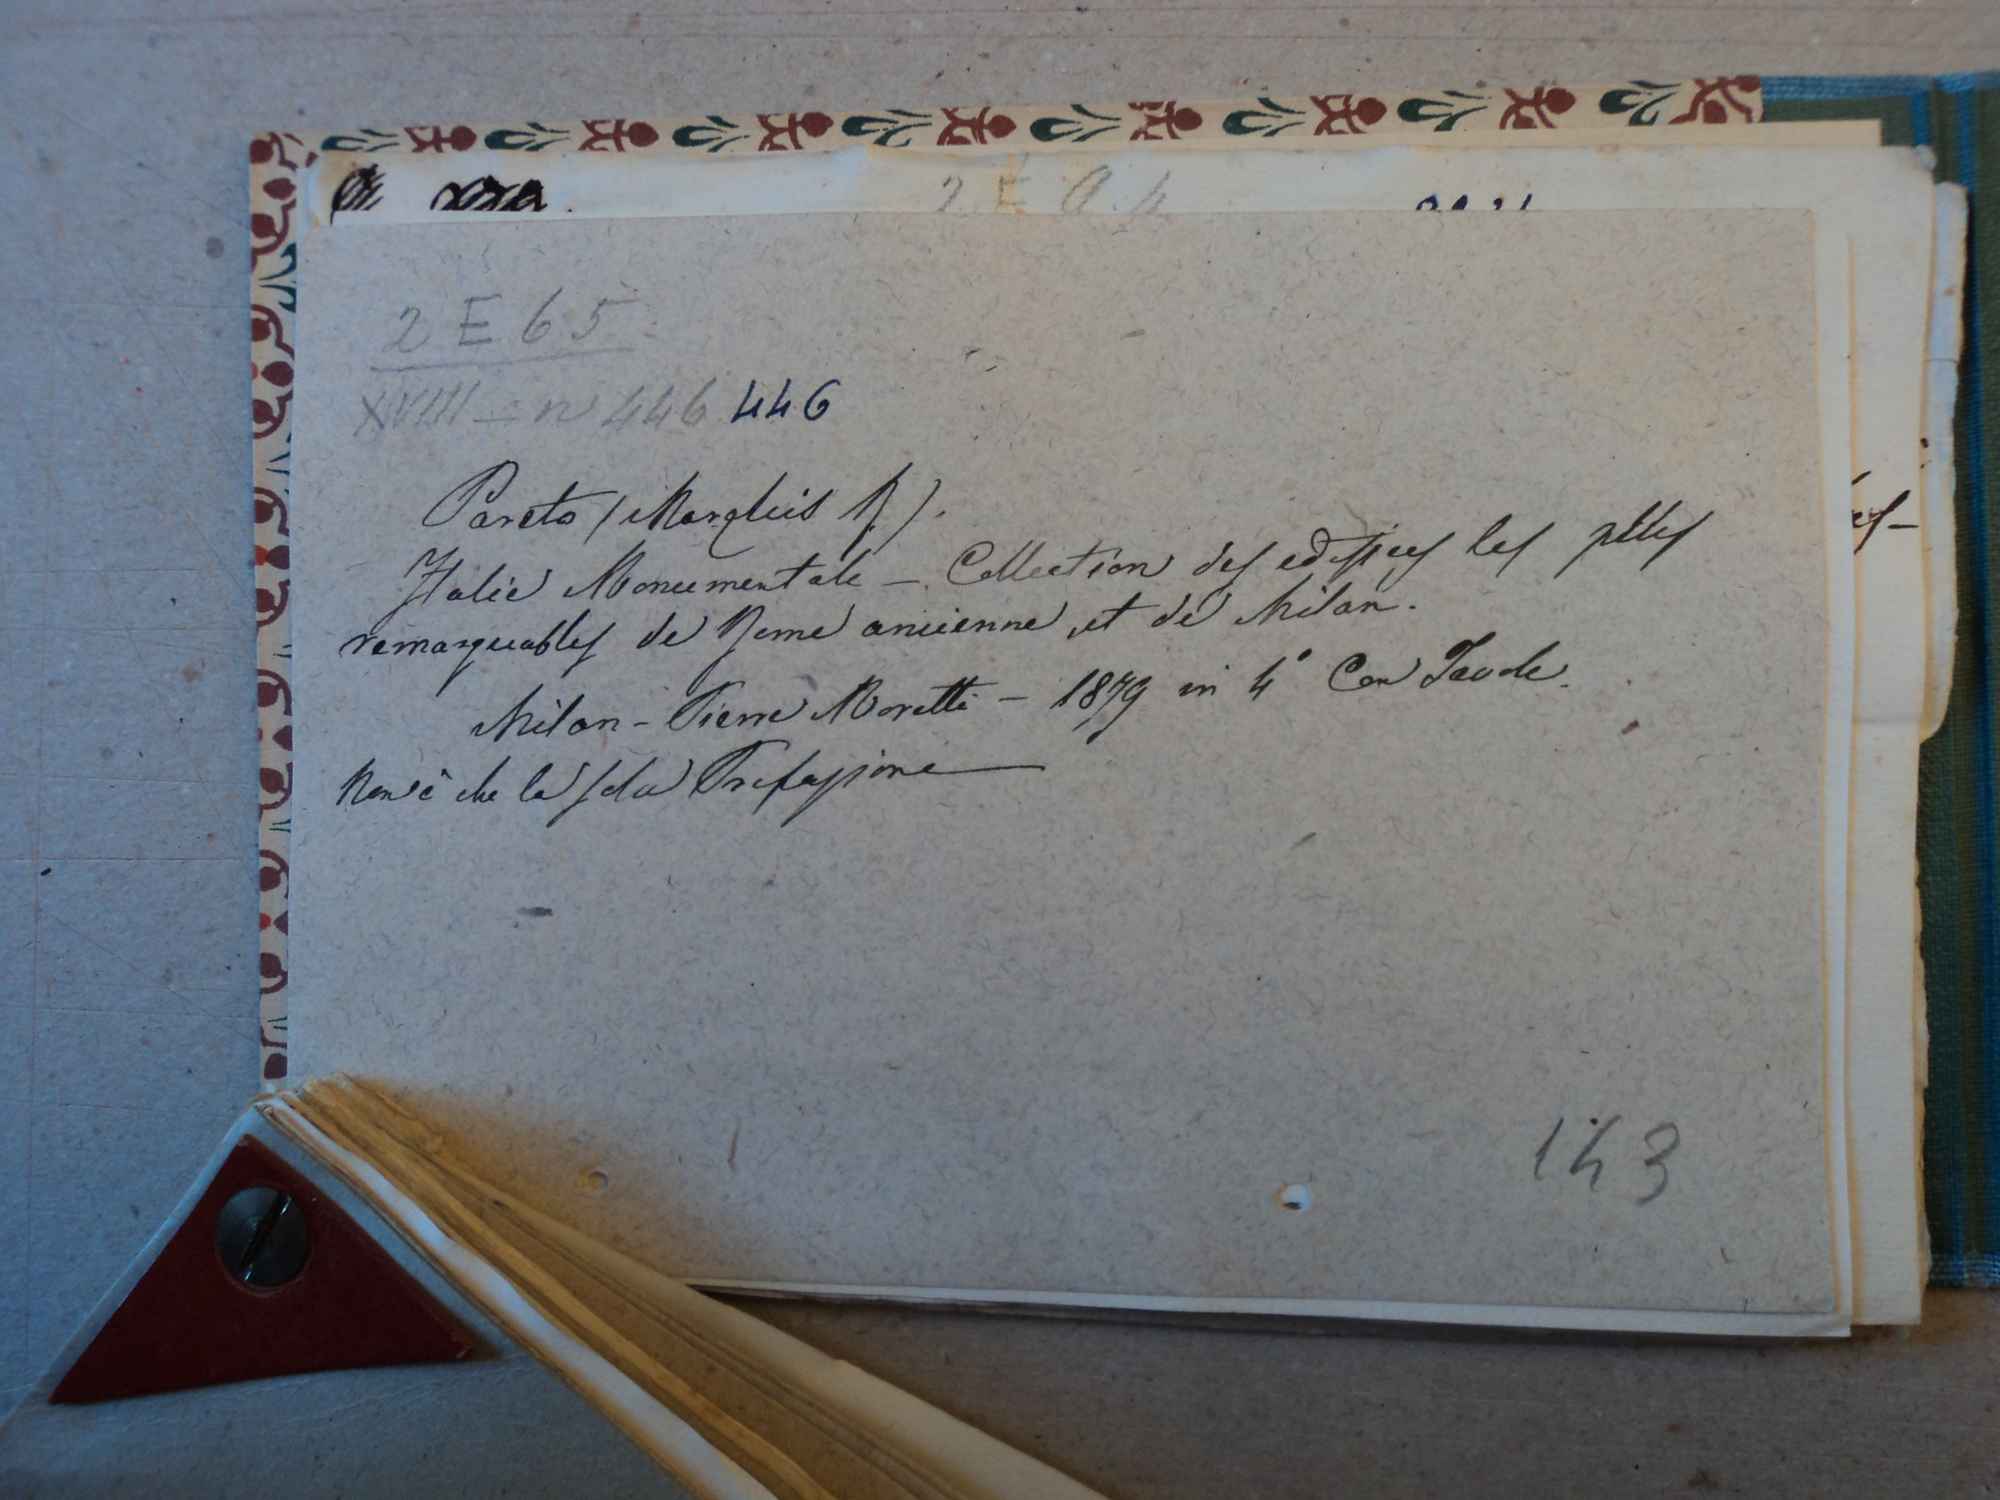 2 E 9 4
2 E 65
XVIIII - n 446 446
Pareto (Marquis R).
Italie Monumentale - Collection des edifices les plus
remarquables de Rome ancienne et de Milan.
Milan - Pierre Moretti - 1879 in 4° Con Tavole.
Non c'è che la sola Prefazione
143